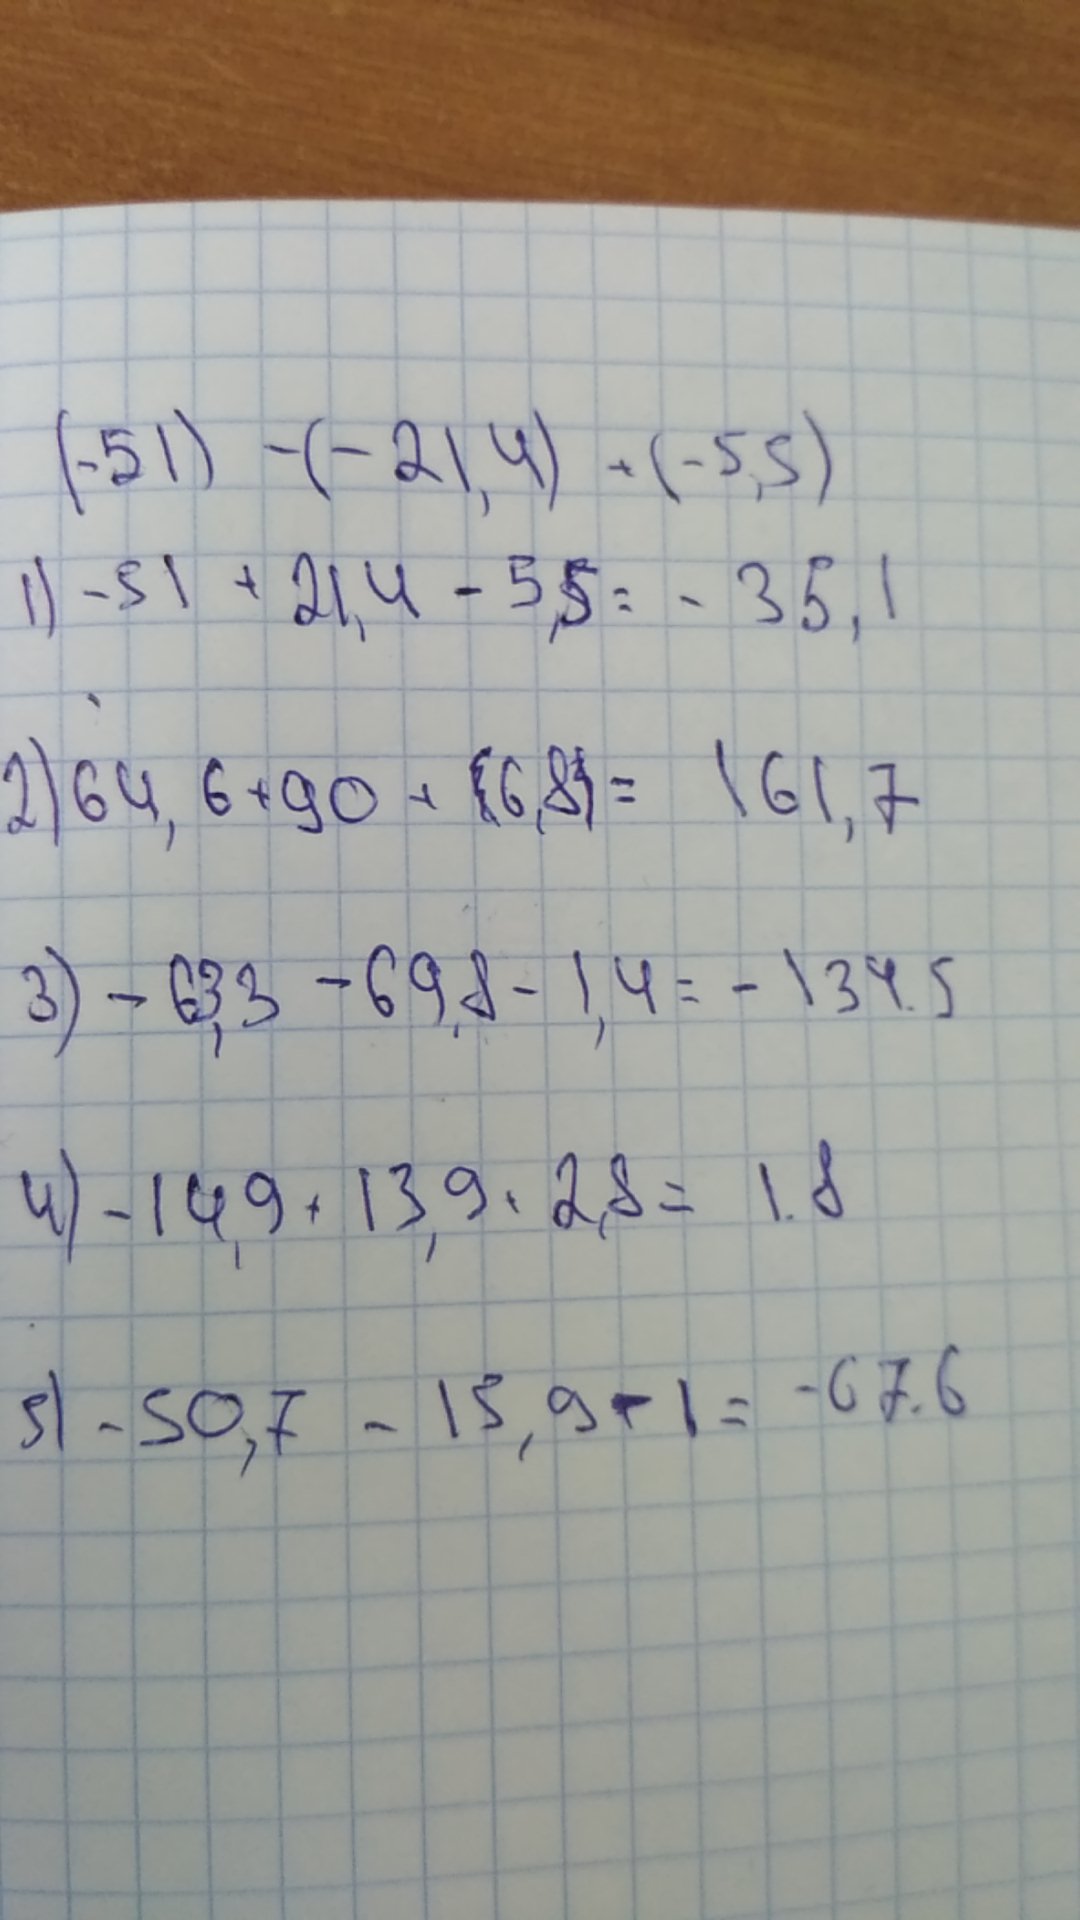 (-51) -(-21,4) +(-5,5)
1) -51 + 21,4 - 5,5 = - 35,1
2) 64,6+90 + (6,8) = 161,7
3) - 63,3 - 69,8 - 1,4 = - 134.5
4) -14,9 + 13,9 + 2,8 = 1.8
5) -50,7 - 15,9 - 1 = -67.6